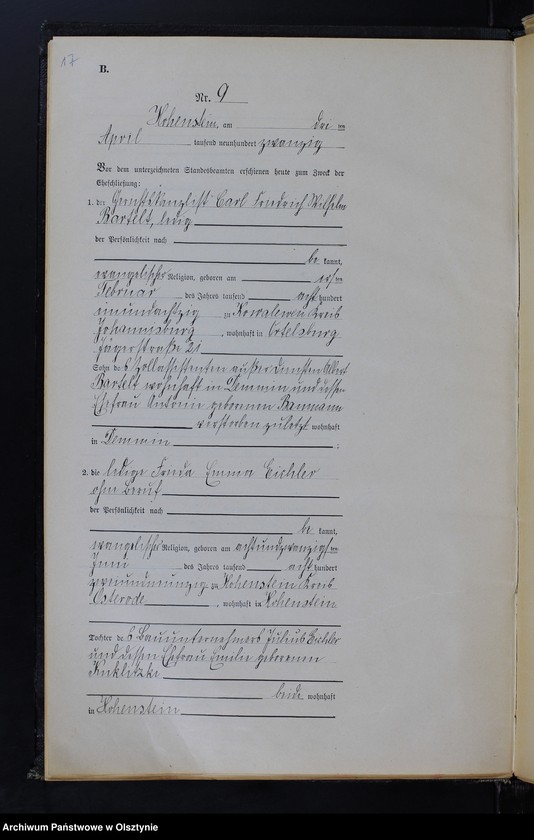 17
B.
Nr. 9
Hohenstein, am dritten
April tausend neunhundert zwanzig
Vor dem unterzeichneten Standesbeamten erschienen heute zum Zweck der
Eheschließung:
1. der Carl Friedrich Wilhelm
Bartelt, ledig
der Persönlichkeit nach
be kannt,
evangelischer Religion, geboren am ersten
Februar des Jahres tausend acht hundert
einundachtzig zu Kowalewen Kreis
Johannisburg, wohnhaft in Ortelsburg
Jägerstraße 21
Sohn des Zollassistenten außer Diensten Albert
Bartelt wohnhaft in Demmin und dessen
Ehefrau geborenen Baumann
verstorben zuletzt wohnhaft
in Demmin ;
2. die ledige Frida Emma Eichler
ohne Beruf
der Persönlichkeit nach
be kannt,
evangelischer Religion, geboren am achtundzwanzigsten
Juni des Jahres tausend acht hundert
zu Hohenstein Kreis
Osterode, wohnhaft in Hohenstein
Tochter des Bauunternehmers Julius Eichler
und dessen Ehefrau Emilie geborenen
Kuklitzki
beide wohnhaft
in Hohenstein
Archiwum Państwowe w Olsztynie